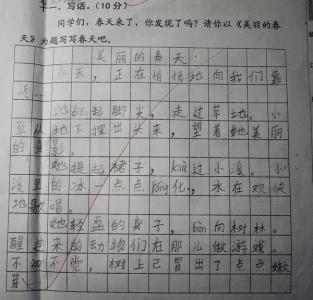 一、写话。(10分)
同学们,春天来了,你发现了吗?请你以《美丽的春
天》为题写写春天吧。
美丽的春天
春天,正在悄悄地向我们靠
近……
她踮起脚尖,走过草地。小
草从地下探出头来,望着她美丽
的身影。
她提起裙子,kuà过小溪。小
溪里的冰一点点róng化,水在欢快
地歌唱。
她轻盈的身子,bèn向树林。
醒过来的动物们在那儿做游戏。
不知不觉,树上已冒出了点点嫩
芽。